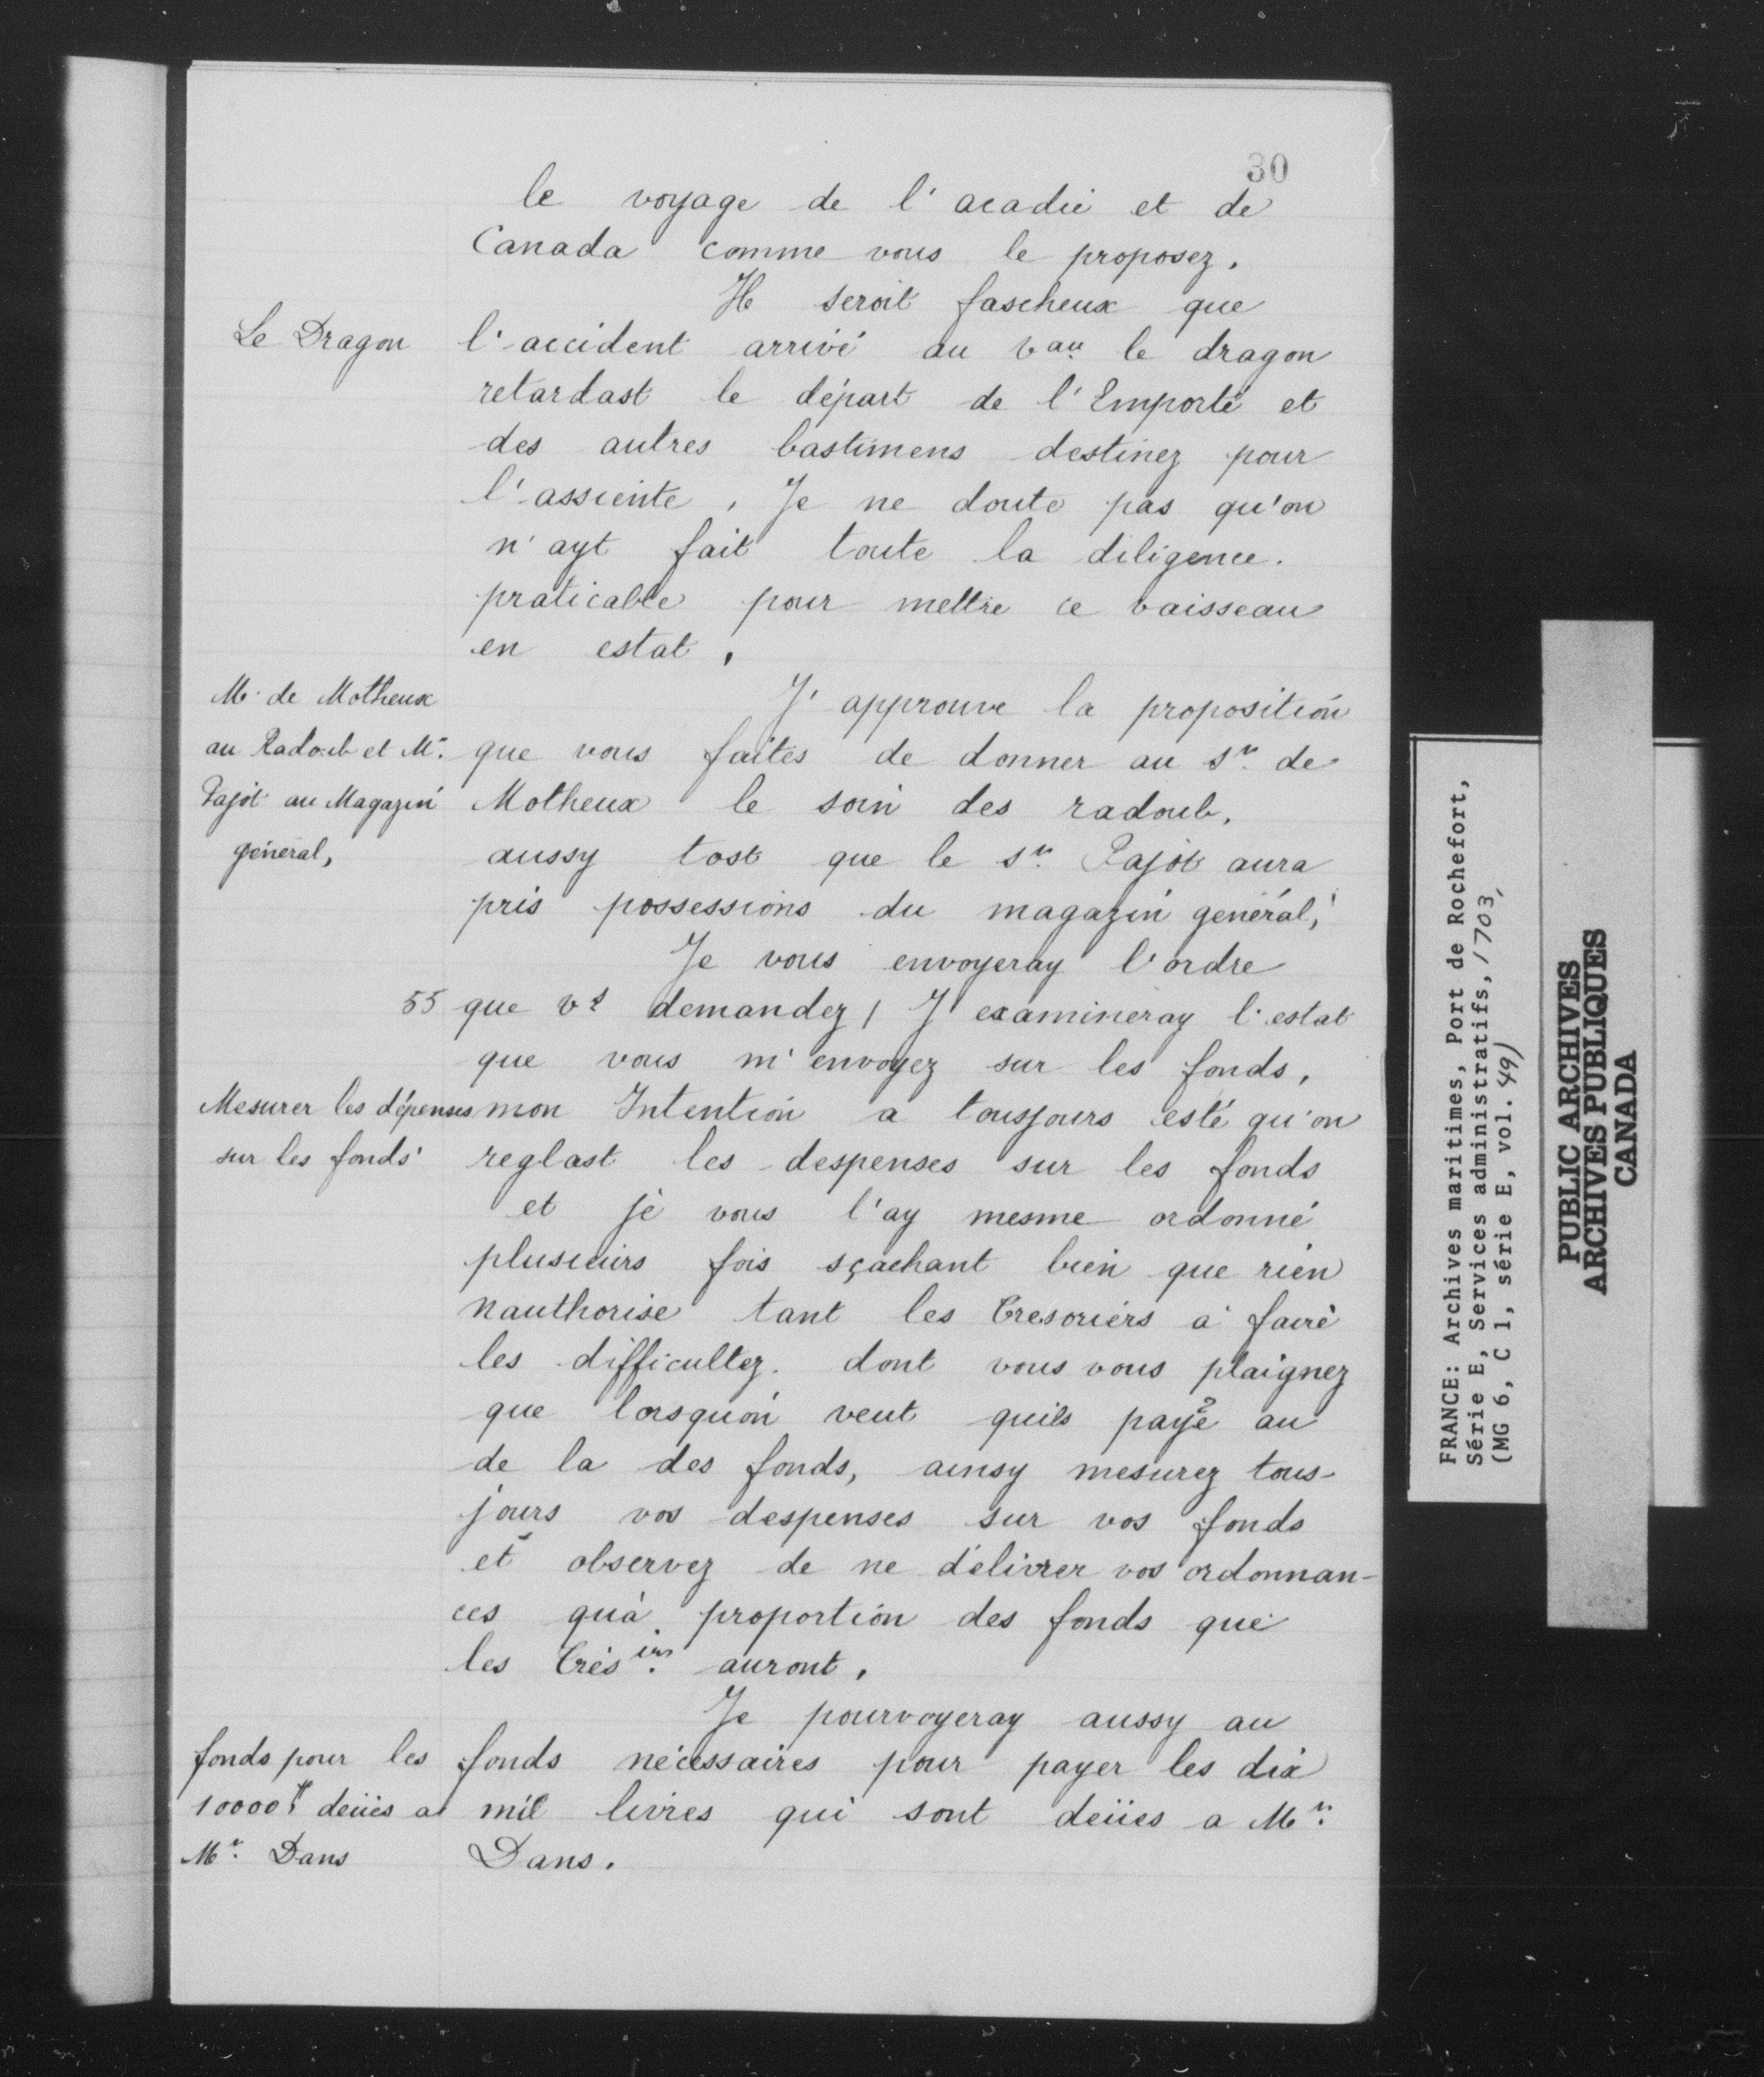 30
le voyage de l'acadie et de
Canada comme vous le proposez.
Il seroit fascheux que
Le Dragon
l'accident arrivé au vau le dragon
retardast le départ de l'Emporté et
des autres bastimens destinez pour
l'assiente, Je ne doute pas qu'on
n'ayt fait toute la diligence.
praticable pour mettre ce vaisseau
en estat,
M. de Motheux
au Radoub et Mr.
Pajot au Magazin
général,
J'approuve la proposition
que vous faites de donner au sr. de
Motheux le soin des radoub,
aussy tost que le sr. Pajot aura
pris possessions du magazin général,
Je vous envoyeray l'ordre
55 que vs demandez, J'examineray l'estat
que vous m'envoyez sur les fonds,
Mesurer les dépenses
sur les fonds
mon Intention a tousjours esté qu'on
reglast les despenses sur les fonds
et je vous l'ay mesme ordonné
plusieurs fois sçachant bien que rien
nauthorise tant les Tresoriers a faire
les difficultez. dont vous vous plaignez
que lorsquon veut quils payẽ au
de la des fonds, ainsy mesurez tous-
jours vos despenses sur vos fonds
et observez de ne délivrer vos ordonnan-
ces qu'à proportion des fonds que
les Trésirs. auront,
Je pourvoyeray aussy au
fonds pour les
10000# deües a
Mr. Dans
fonds nécessaires pour payer les dix
mil livres qui sont deües a Mr.
Dans.
FRANCE: Archives maritimes, Port de Rochefort,
Série E, Services administratifs, 1703,
(MG 6, C 1, série E, vol. 49)
PUBLIC ARCHIVES
ARCHIVES PUBLIQUES
CANADA